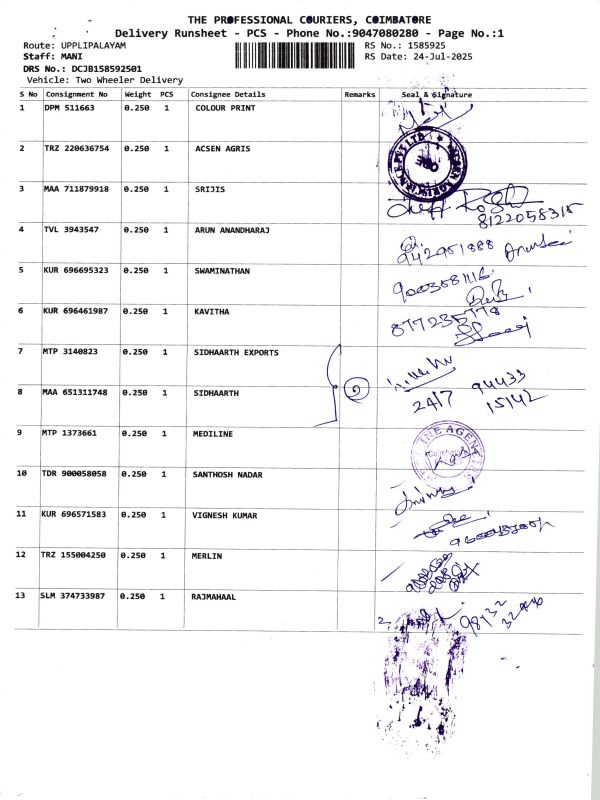 THE PROFESSIONAL COURIERS, COIMBATORE
Delivery Runsheet - PCS - Phone No.:9047080280 - Page No.:1
Route: UPPLIPALAYAM RS No.: 1585925
Staff: MANI RS Date: 24-Jul-2025
DRS No.: DCJB158592501
Vehicle: Two Wheeler Delivery
S No Consignment No Weight PCS Consignee Details Remarks Seal & Signature
1 DPM 511663 0.250 1 COLOUR PRINT
2 TRZ 220636754 0.250 1 ACSEN AGRIS
3 MAA 711879918 0.250 1 SRIJIS
8122058315
4 TVL 3943547 0.250 1 ARUN ANANDHARAJ
9442951888
5 KUR 696695323 0.250 1 SWAMINATHAN
6 KUR 696461987 0.250 1 KAVITHA
7 MTP 3140823 0.250 1 SIDHAARTH EXPORTS
8 MAA 651311748 0.250 1 SIDHAARTH
24/7 94433 15142
9 MTP 1373661 0.250 1 MEDILINE
10 TDR 900058058 0.250 1 SANTHOSH NADAR
11 KUR 696571583 0.250 1 VIGNESH KUMAR
12 TRZ 155004250 0.250 1 MERLIN
13 SLM 374733987 0.250 1 RAJMAHAAL